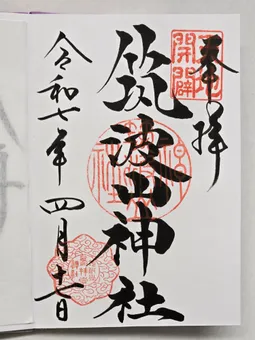 奉拝
天地
開闢
筑波山神社
令和七年四月十七日